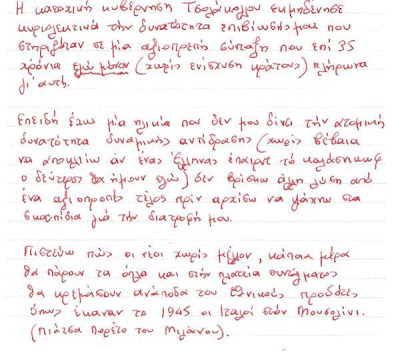 Η κατοχική κυβέρνηση Τσολάκογλου εκμηδένησε
κυριολεκτικά την δυνατότητα επιβίωσής μου που
στηριζόταν σε μια αξιοπρεπή σύνταξη που επί 35
χρόνια εγώ μόνον (χωρίς ενίσχυση κράτους) πλήρωνα
γι' αυτή.
Επειδή έχω μια ηλικία που δεν μου δίνει την ατομική
δυνατότητα δυναμικής αντίδρασης (χωρίς βέβαια
να αποκλείω αν ένας Έλληνας έπαιρνε το καλάσνικωφ
ο δεύτερος θα ήμουν εγώ) δεν βρίσκω άλλη λύση από
ένα αξιοπρεπές τέλος πριν αρχίσω να ψάχνω στα
σκουπίδια για την διατροφή μου.
Πιστεύω πως οι νέοι χωρίς μέλλον, κάποια μέρα
θα πάρουν τα όπλα και στην πλατεία συντάγματος
θα κρεμάσουν ανάποδα τους εθνικούς προδότες
όπως έκαναν το 1945 οι Ιταλοί στον Μουσολίνι.
(Πιάτσα Πορέτο του Μιλάνου).